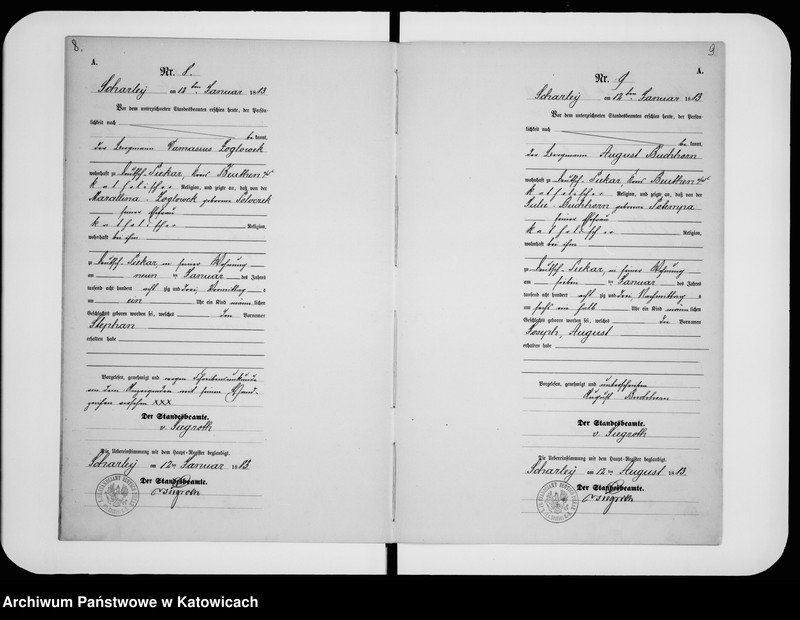 8.
A.
Nr. 8.
Scharley am 12 ten Januar 1883
Vor dem unterzeichneten Standesbeamten erschien heute, der Persön-
lichkeit nach
be kannt,
der Bergmann Damasius Zoglowek
wohnhaft zu Deutsch-Piekar, Kreis Beuthen
katholischer Religion, und zeigte an, daß von der
Zoglowek geborene
seiner Ehefrau
katholischer Religion,
wohnhaft bei ihm
zu Deutsch-Piekar, in seiner Wohnung
am neun ten Januar des Jahres
tausend acht hundert acht zig und drei, Vormittag s
um ein Uhr ein Kind männlichen
Geschlechts geboren worden sei, welches den Vornamen
Stephan
erhalten habe
Vorgelesen, genehmigt und wegen Schreibensunkunde
von dem Anzeigenden mit seinem Hand-
zeichen versehen XXX
Der Standesbeamte.
v. Siegroth
Die Uebereinstimmung mit dem Haupt-Register beglaubigt.
Scharley am 12 ten Januar 1883.
Der Standesbeamte.
v. Siegroth
9.
A.
Nr. 9
Scharley am 12 ten Januar 1883.
Vor dem unterzeichneten Standesbeamten erschien heute, der Persön-
lichkeit nach
be kannt,
der Bergmann August Buchhorn
wohnhaft zu Deutsch-Piekar, Kreis Beuthen
katholischer Religion, und zeigte an, daß von der
Julie Buchhorn geborene
seiner Ehefrau
katholischer Religion,
wohnhaft bei ihm
zu Deutsch-Piekar, in seiner Wohnung
am sieben ten Januar des Jahres
tausend acht hundert acht zig und drei, Nachmittag s
um sechs ein halb Uhr ein Kind männlichen
Geschlechts geboren worden sei, welches die Vornamen
Joseph, August
erhalten habe
Vorgelesen, genehmigt und unterschrieben
August Buchhorn
Der Standesbeamte.
v. Siegroth
Die Uebereinstimmung mit dem Haupt-Register beglaubigt.
Scharley am 12 ten August 1883.
Der Standesbeamte.
v. Siegroth
Archiwum Państwowe w Katowicach